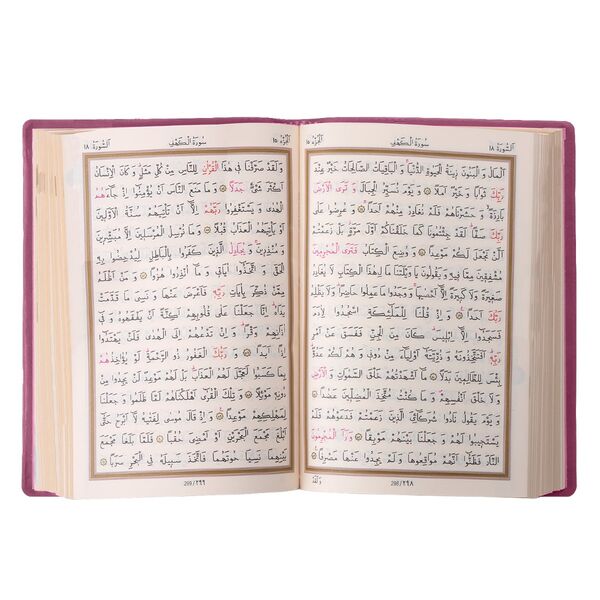 الجزء ١٥
سورة الكهف
السورة ١٨
المال و البنون زينة الحيوة الدنيا و الباقيات الصالحات خير عند
ربك ثوابا و خير املا و يوم نسير الجبال و ترى الارض
بارزة و حشرناهم فلم نغادر منهم احدا و عرضوا على
ربك صفا لقد جئتمونا كما خلقناكم اول مرة بل زعمتم
الن نجعل لكم موعدا و وضع الكتاب فترى المجرمين
مشفقين مما فيه و يقولون يا ويلتنا مال هذا الكتاب لا يغادر
صغيرة ولا كبيرة الا احصيها و وجدوا ما عملوا حاضرا ولا يظلم
ربك احدا و اذ قلنا للملئكة اسجدوا لادم
فسجدوا الا ابليس كان من الجن ففسق عن امر
ربه افتتخذونه و ذريته اولياء من دوني و هم لكم عدو
بئس للظالمين بدلا ما اشهدتهم خلق السموات و الارض
ولا خلق انفسهم و ما كنت متخذ المضلين عضدا
و يوم يقول نادوا شركائي الذين زعمتم فدعوهم فلم
يستجيبوا لهم و جعلنا بينهم موبقا و را المجرمون
النار فظنوا انهم مواقعوها و لم يجدوا عنها مصرفا
298/٢٩٨
و لقد
الجزء ١٥
سورة الكهف
السورة ١٨
و لقد صرفنا في هذا القران للناس من كل مثل و كان الانسان
اكثر شيء جدلا و ما منع الناس ان يؤمنوا اذ جاءهم
الهدى و يستغفروا ربهم الا ان تأتيهم سنة الاولين
او يأتيهم العذاب قبلا و ما نرسل المرسلين الا مبشرين
و منذرين و يجادل الذين كفروا بالباطل ليدحضوا به
الحق و اتخذوا اياتي و ما انذروا هزوا و من اظلم
ممن ذكر بايات ربه فاعرض عنها و نسي ما قدمت
يداه انا جعلنا على قلوبهم اكنة ان يفقهوه و في
اذانهم وقرا و ان تدعهم الى الهدى فلن يهتدوا
اذا ابدا و ربك الغفور ذو الرحمة لو يؤاخذهم
بما كسبوا لعجل لهم العذاب بل لهم موعد لن يجدوا من
دونه موئلا و تلك القرى اهلكناهم لما ظلموا و جعلنا
لمهلكهم موعدا و اذ قال موسى لفتيه لا ابرح حتى
ابلغ مجمع البحرين او امضي حقبا فلما بلغا مجمع
بينهما نسيا حوتهما فاتخذ سبيله في البحر سربا
299/٢٩٩